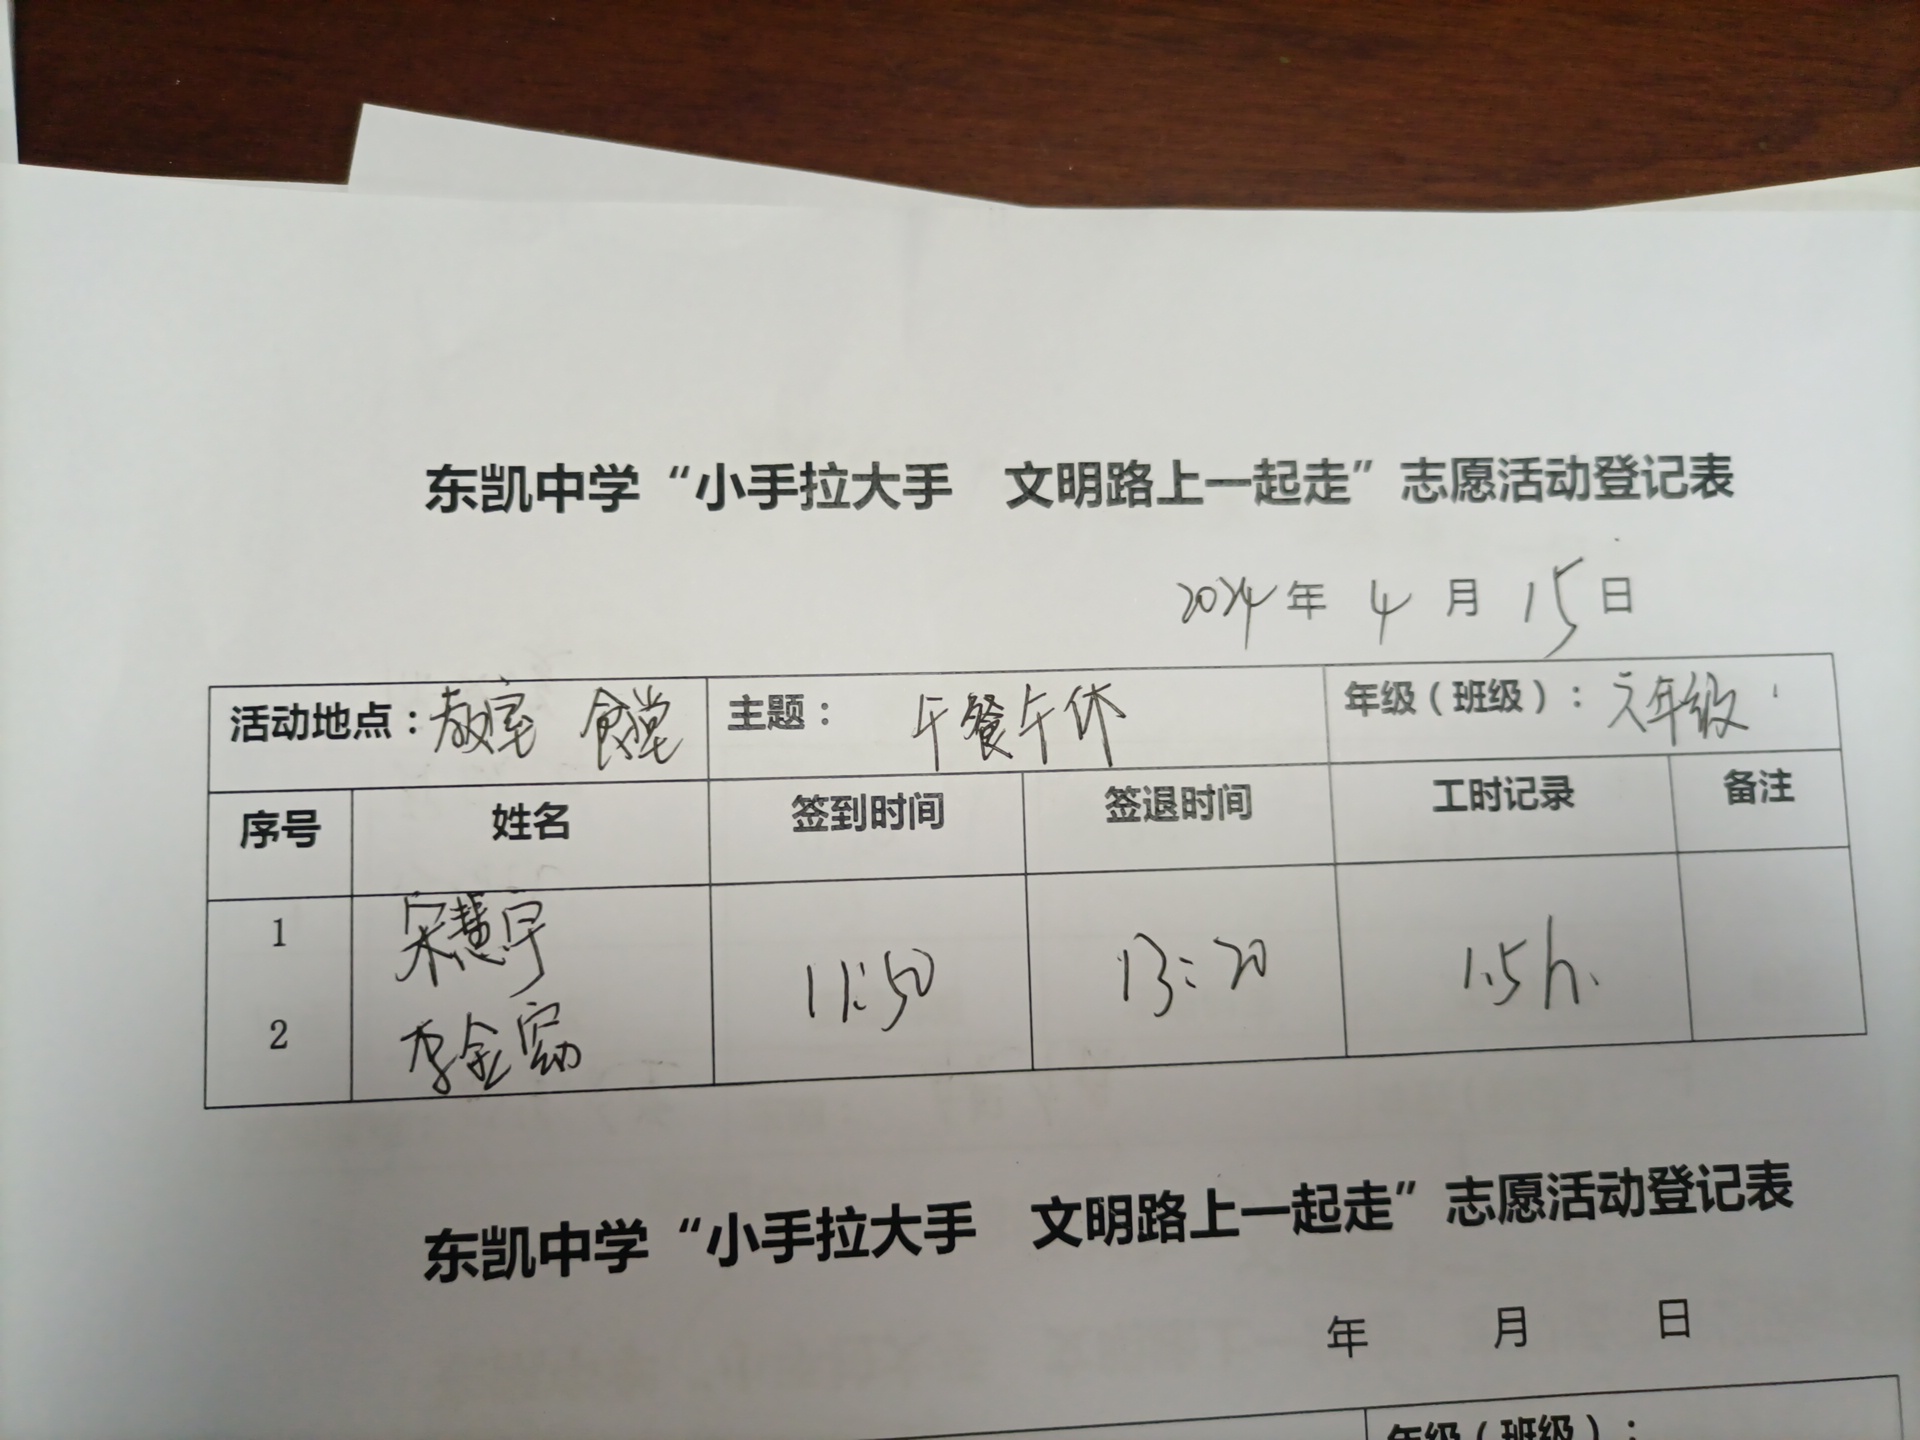 东凯中学“小手拉大手 文明路上一起走”志愿活动登记表
2024年 4 月 15日
活动地点:教室 食堂 主题: 午餐午休 年级(班级):六年级
序号 姓名 签到时间 签退时间 工时记录 备注
1 宋慧宇
11:50 13:20 1.5h.
2 李金
东凯中学“小手拉大手 文明路上一起走”志愿活动登记表
年 月 日
年级(班级):